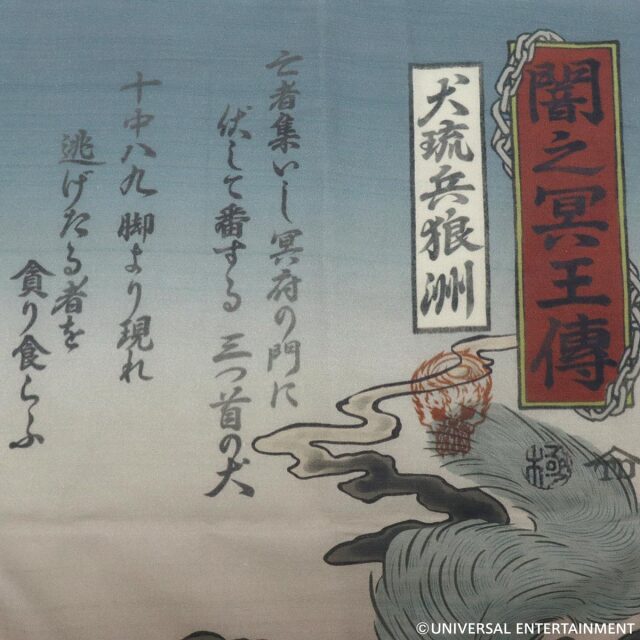 闇之冥王傳
犬琉兵狼洲
亡者集いし冥府の門に
伏して番する 三つ首の犬
十中八九 脚より現れ
逃げたる者を
貪り食らふ
極
©UNIVERSAL ENTERTAINMENT